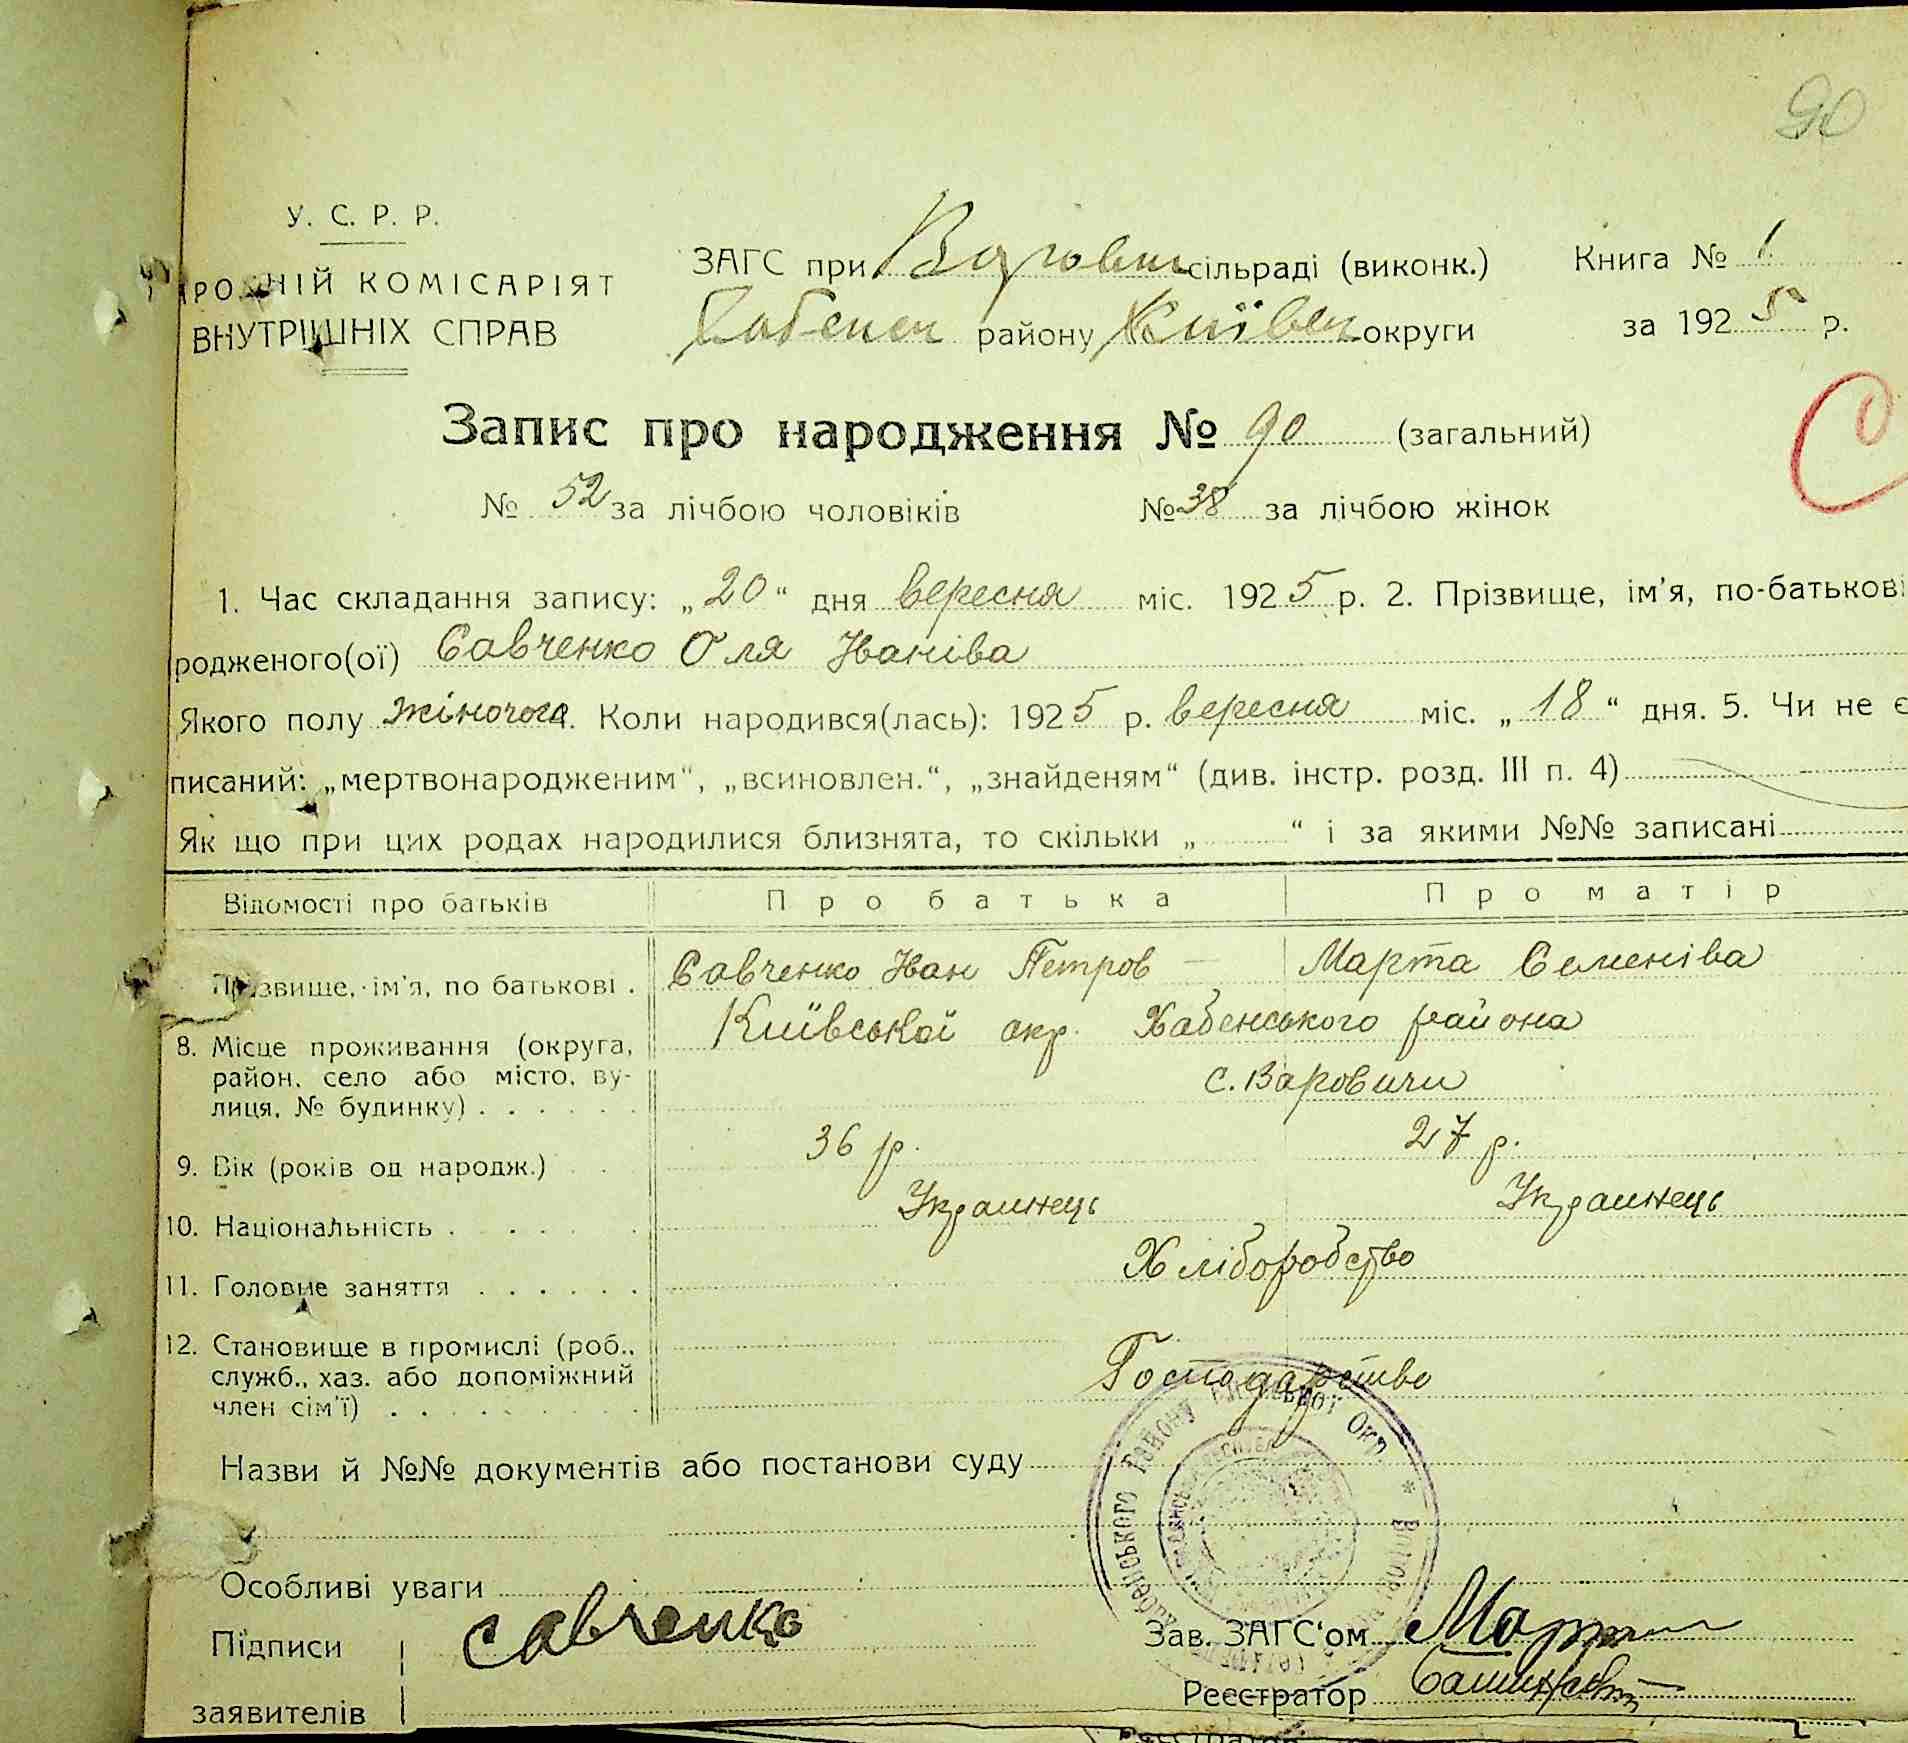 90
У. С. Р. Р.
РОДНІЙ КОМІСАРІЯТ
ВНУТРІШНІХ СПРАВ
ЗАГС при Варовиц сільраді (виконк.) Книга № 1
Хабенск району Київськ округи за 1925 р.
Запис про народження № 90 (загальний)
С
№ 52 за лічбою чоловіків № 38 за лічбою жінок
1. Час складання запису: „20“ дня вересня міс. 1925 р. 2. Прізвище, ім’я, по-батькові
родженого(ої) Савченко Оля Іваніва
Якого полу жіночого 4. Коли народився(лась): 1925 р. вересня міс. „18“ дня. 5. Чи не є
писаний: „мертвонародженим“, „всиновлен.“, „знайденям“ (див. інстр. розд. III п. 4)
Як що при цих родах народилися близнята, то скільки „ “ і за якими №№ записані
Відомості про батьків Про батька Про матір
Прізвище, ім’я, по батькові . Савченко Іван Петров — Марта Семеніва
8. Місце проживання (округа, район, село або місто, вулиця, № будинку) . . . . . . Київської окр. Хабенського района
с. Варовичи
9. Вік (років од народж.) . . 36 р. 27 р.
10. Національність . . . . . Украинець Украинець
11. Головне заняття . . . . . . Хліборобство
12. Становище в промислі (роб., служб., хаз. або допоміжний член сім’ї) . . . . . . Господарство
Назви й №№ документів або постанови суду
Хабенського району Київської Окр. *
Особливі уваги
Підписи савченко Зав. ЗАГС‘ом
заявителів Реєстратор